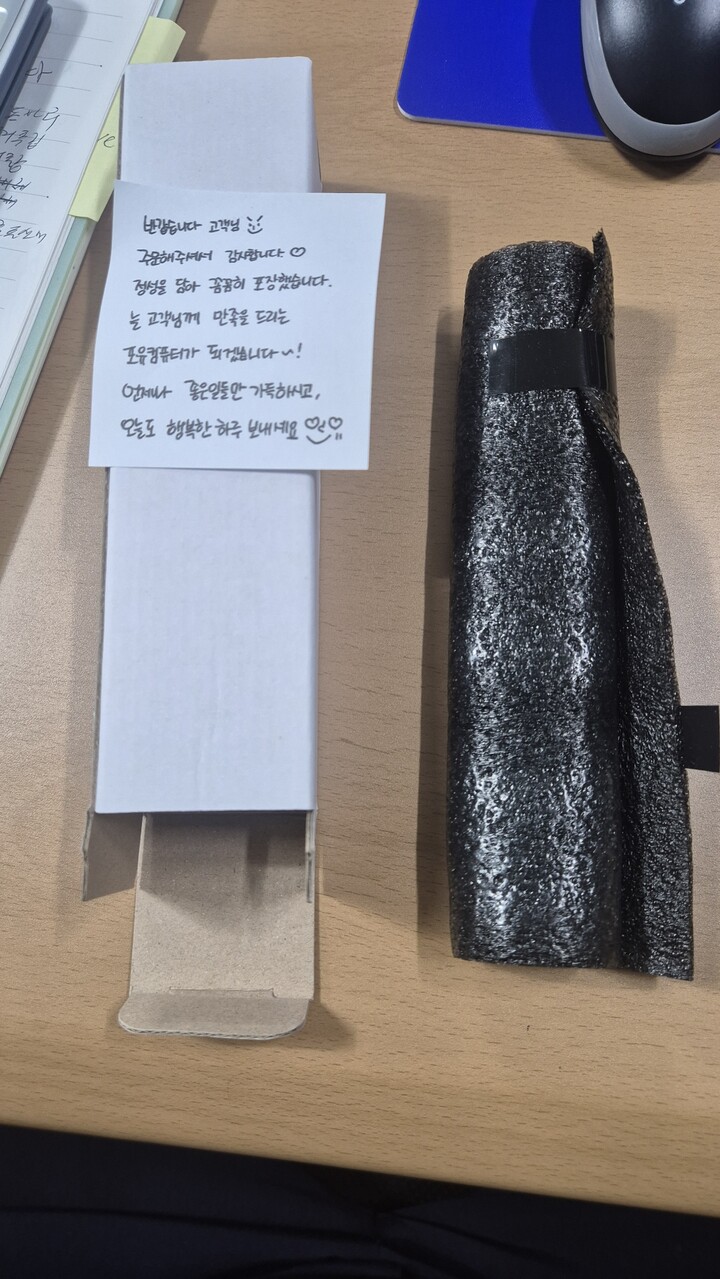 반갑습니다 고객님
주문해주셔서 감사합니다 ♡
정성을 담아 꼼꼼히 포장했습니다.
늘 고객님께 만족을 드리는
포유컴퓨터가 되겠습니다~!
언제나 좋은일들만 가득하시고,
오늘도 행복한 하루 보내세요